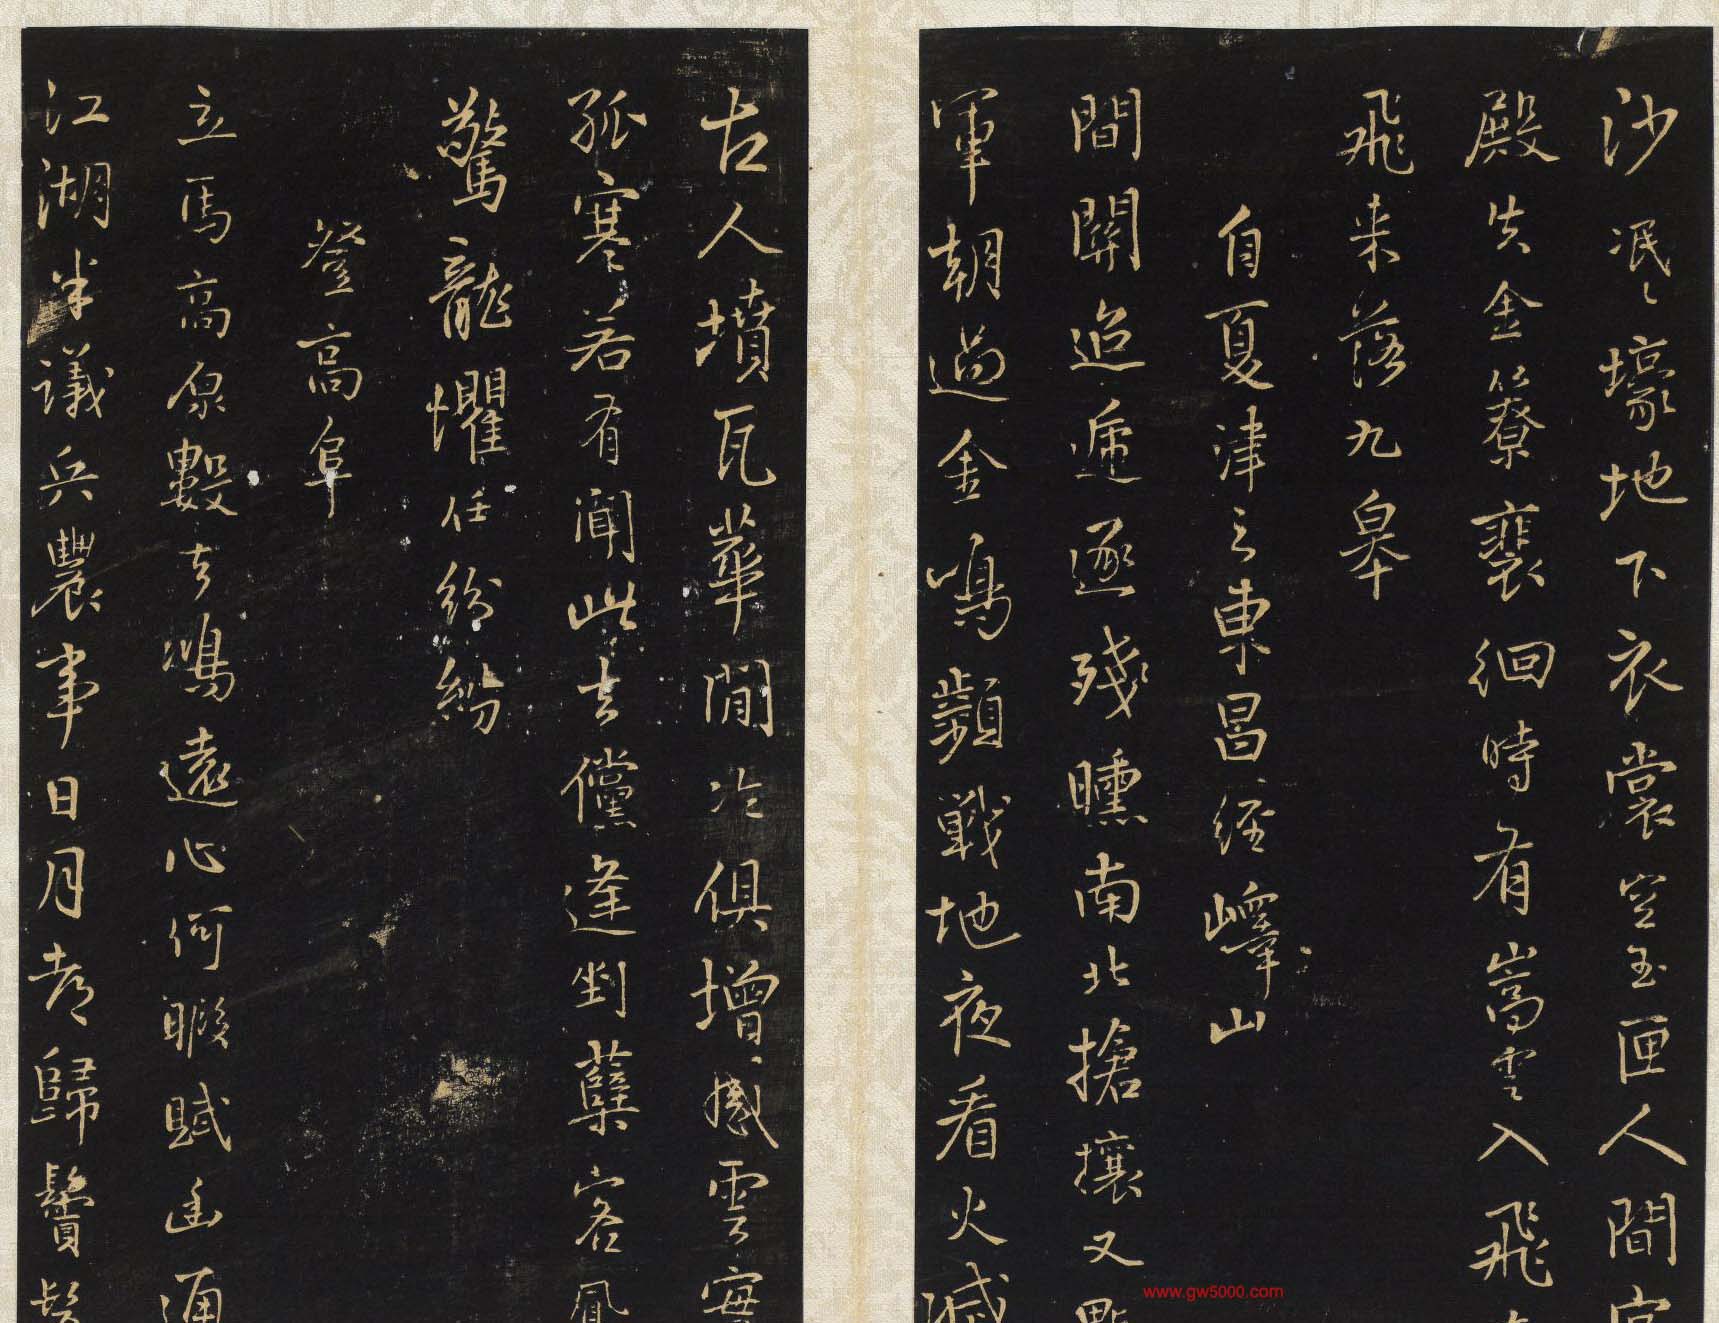 沙泯〻壕地下衣裳空玉匣人間宮
殿失金簝裴徊時有嵩雲入飛
飛来落九皐
自夏津之東昌經嶧山
間關迢遞逐殘曛南北搶攘又
軍朝過金鳴顰戰地夜看火滅
古人墳瓦華閒冷俱增感雲寔
孤寒若有聞此去儻逢對蘖客鳳
驚龍懼任紛紛
登高阜
立馬高泉數去鴻遠心何暇賦幽通
江湖半議兵農事日月考歸鬢髮
www.gw5000.com